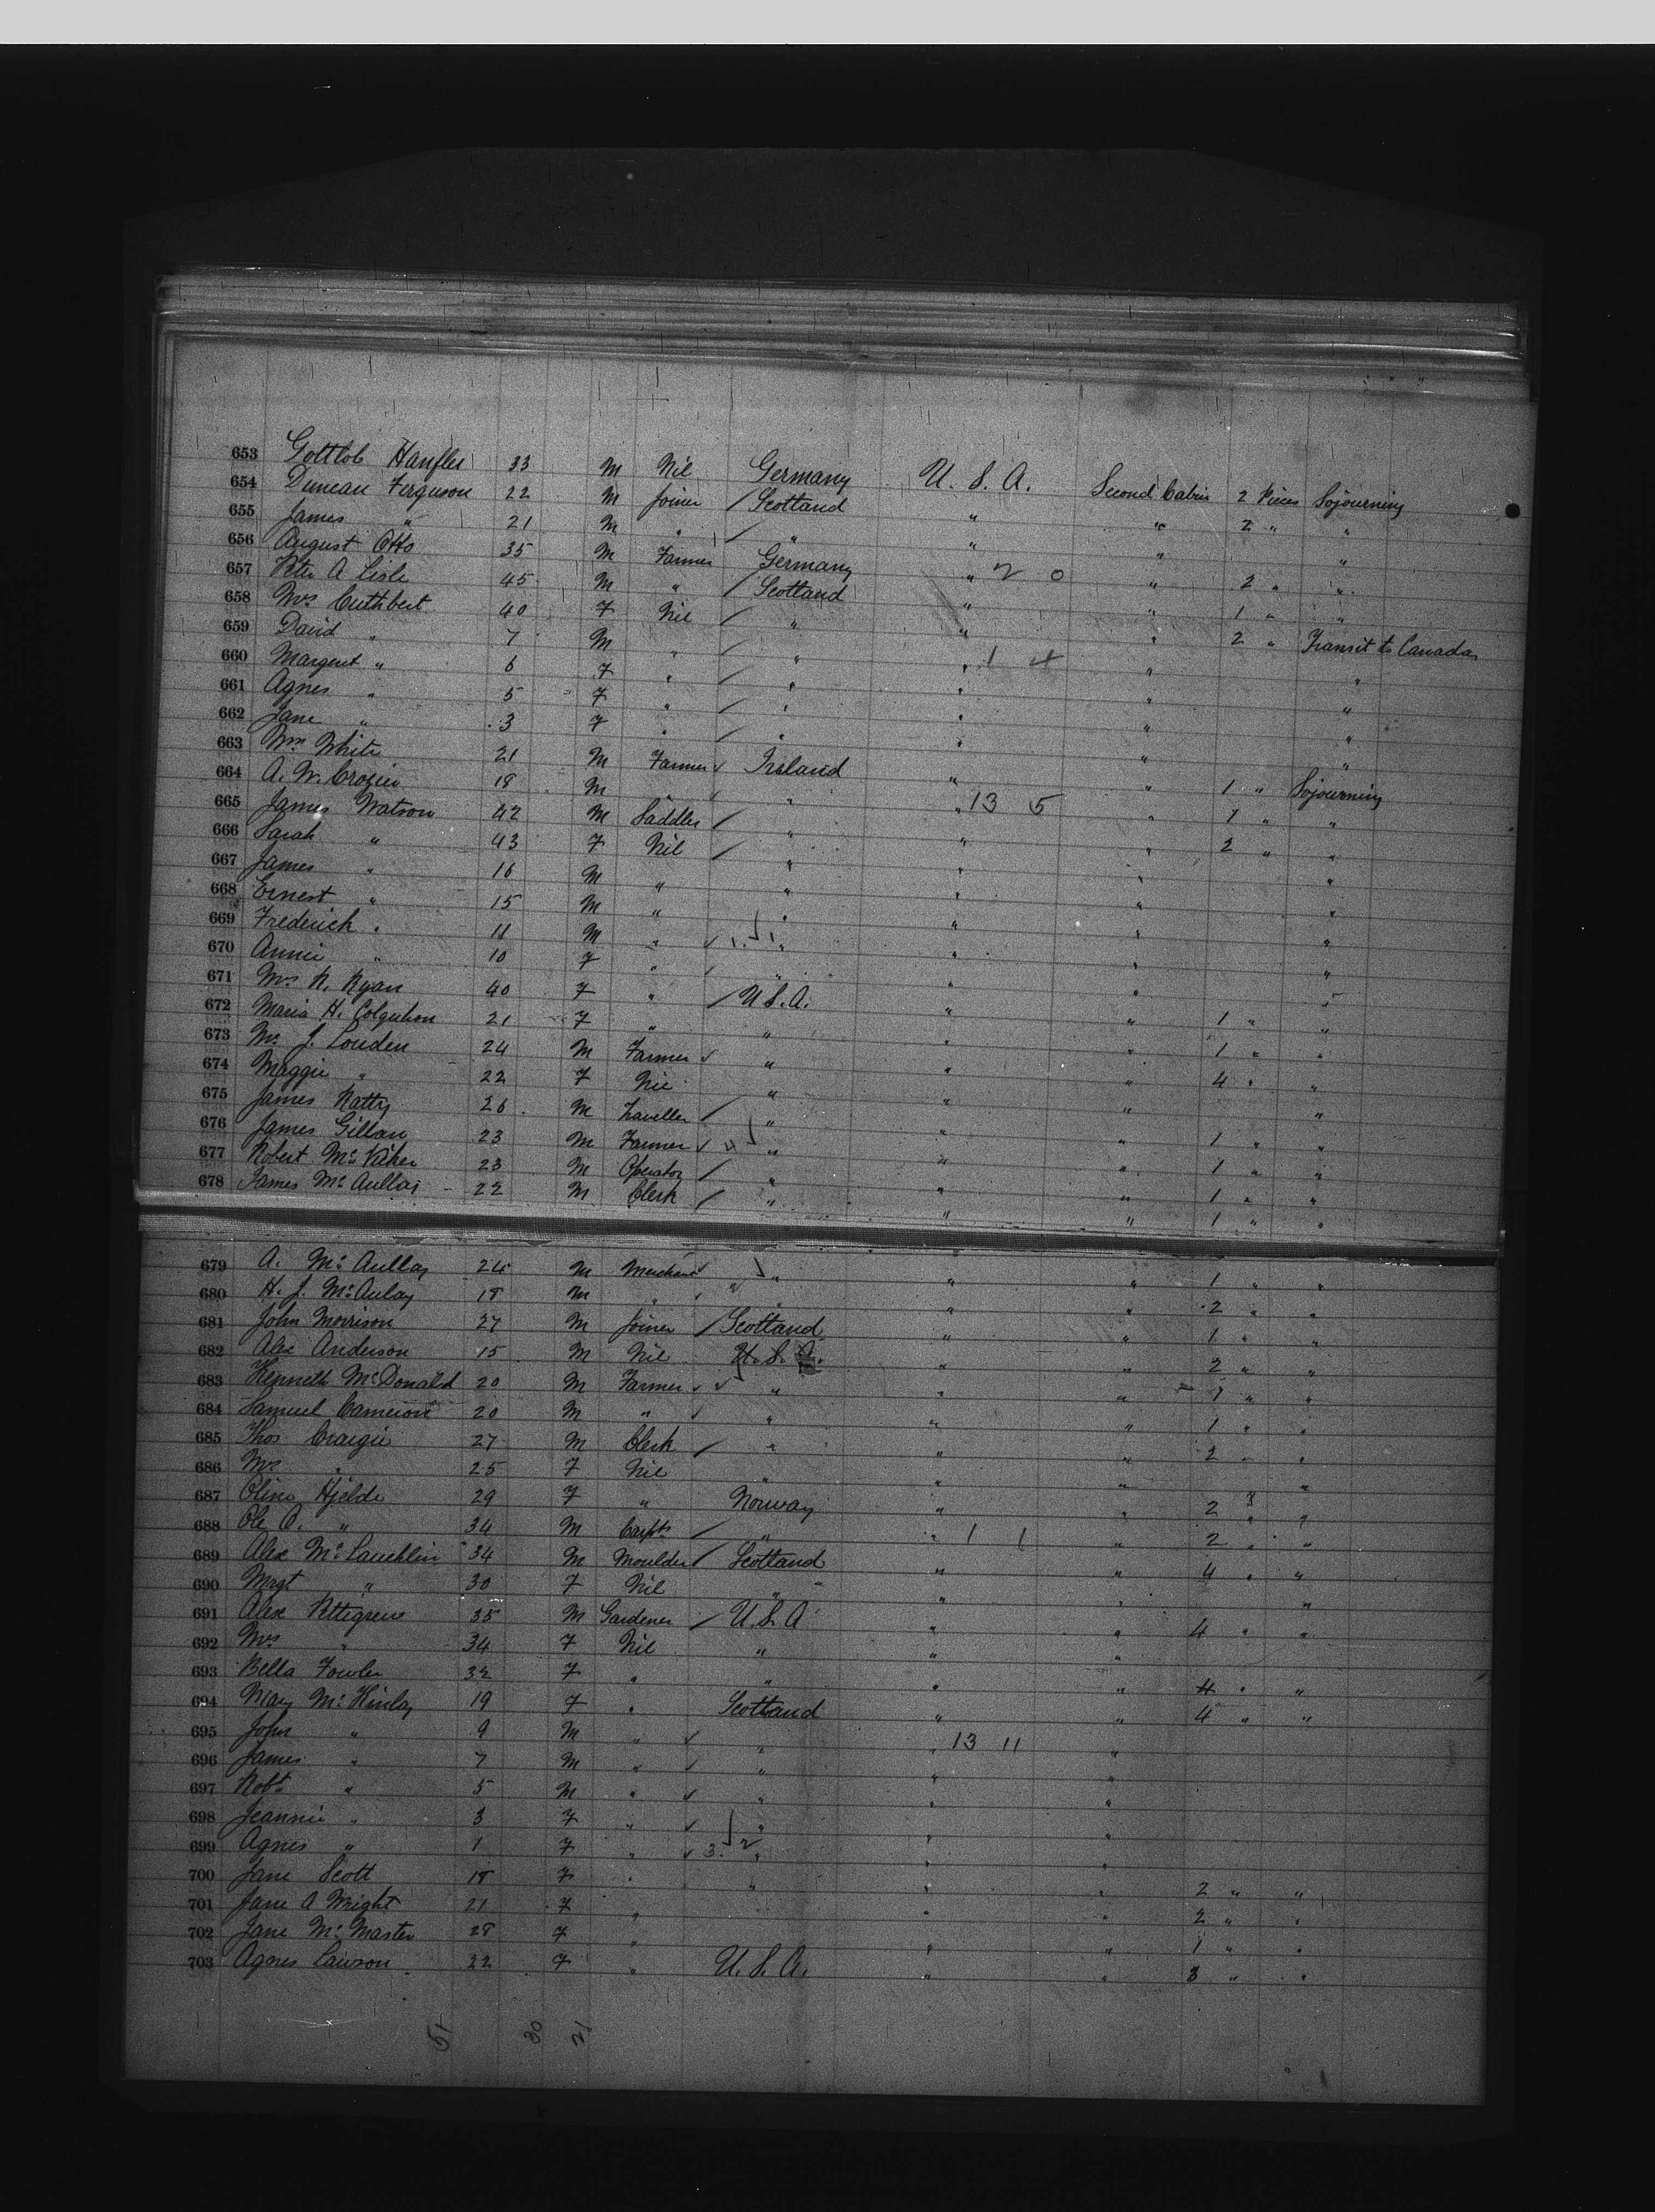 653 Gottlob Haufler 33 M Nil Germany U. S. A. Second Cabin 2 Pieces Sojourning
654 Duncan Ferguson 22 M Joiner / Scotland " " 2 " "
655 James " 21 M " / " " " "
656 August Otto 35 M Farmer Germany " 2 0 " 2 " "
657 Peter A Lisle 45 M " / Scotland " " 1 " "
658 Mrs Cuthbert 40 F Nil / " " " 2 " Transit to Canada
659 David " 7 M " / " " 1 4 " "
660 Margeret " 6 F " / " " " "
661 Agnes " 5 F " / " " " "
662 Jane " 3 F " / " " " "
663 Wm White 21 M Farmer ✓ Ireland " " 1 " Sojourning
664 A. W. Crozier 18 M " ✓ " " 13 5 " 1 " "
665 James Watson 42 M Saddler / " " " 2 " "
666 Sarah " 43 F Nil / " " " "
667 James " 16 M " " " " "
668 Ernest " 15 M " " " " "
669 Frederick " 11 M " ✓ 1. 1 " " " "
670 Annie " 10 F " ✓ " " "
671 Mrs R. Ryan 40 F " / U.S.A. " " 1 " "
672 Maria H. Colquhon 21 F " " " " 1 " "
673 Mr J. Louden 24 M Farmer ✓ " " " 4 " "
674 Maggie " 22 F Nil " " " "
675 James Ratty 26 M Traveller / " " " 1 " "
676 James Gillan 23 M Farmer ✓ " " " 1 " "
677 Robert Mc 23 M Operator / " " " 1 " "
678 James McAullay 22 M Clerk / " " " 1 " "
679 A. McAullay 24 M Merchant ✓ " " " 1 " "
680 H. J. McAulay 18 M " ✓ " " " 2 " "
681 John Morrison 27 M Joiner / Scotland " " 1 " "
682 Alex Anderson 15 M Nil U. S. A. " " 2 " "
683 Kenneth McDonald 20 M Farmer ✓ " " " 1 " "
684 Samuel Cameron 20 M " ✓ " " " 1 " "
685 Thos Craigie 27 M Clerk / " " " 2 " "
686 Mrs " 25 F Nil " " " "
687 Oline Hjelde 29 F " Norway " " 2 " "
688 Ole O. " 34 M Carptr / " " 1 1 2 " "
689 Alex McLauchlin 34 M Moulder / Scotland " " 4 " "
690 Mrgt " 30 F Nil " " " "
691 Alex Pettigrew 35 M Gardener / U.S.A " " 4 " "
692 Mrs " 34 F Nil " " "
693 Bella Fowler 32 F " " " " 4 " "
694 Mary McKinlay 19 F " Scotland " " 4 " "
695 John " 9 M " ✓ " " 13 11 "
696 James " 7 M " ✓ " " "
697 Robt " 5 M " ✓ " " "
698 Jeannie " 3 F " ✓ " " "
699 Agnes " 1 F " ✓ 3. 2 " "
700 Jane Scott 18 F " " " " 2 " "
701 Jane A Wright 21 F " " " 2 " "
702 Jane McMaster 28 F " " " 1 " "
703 Agnes Lawson 22 F " U. S. A. " " 3 " "
51 30 21